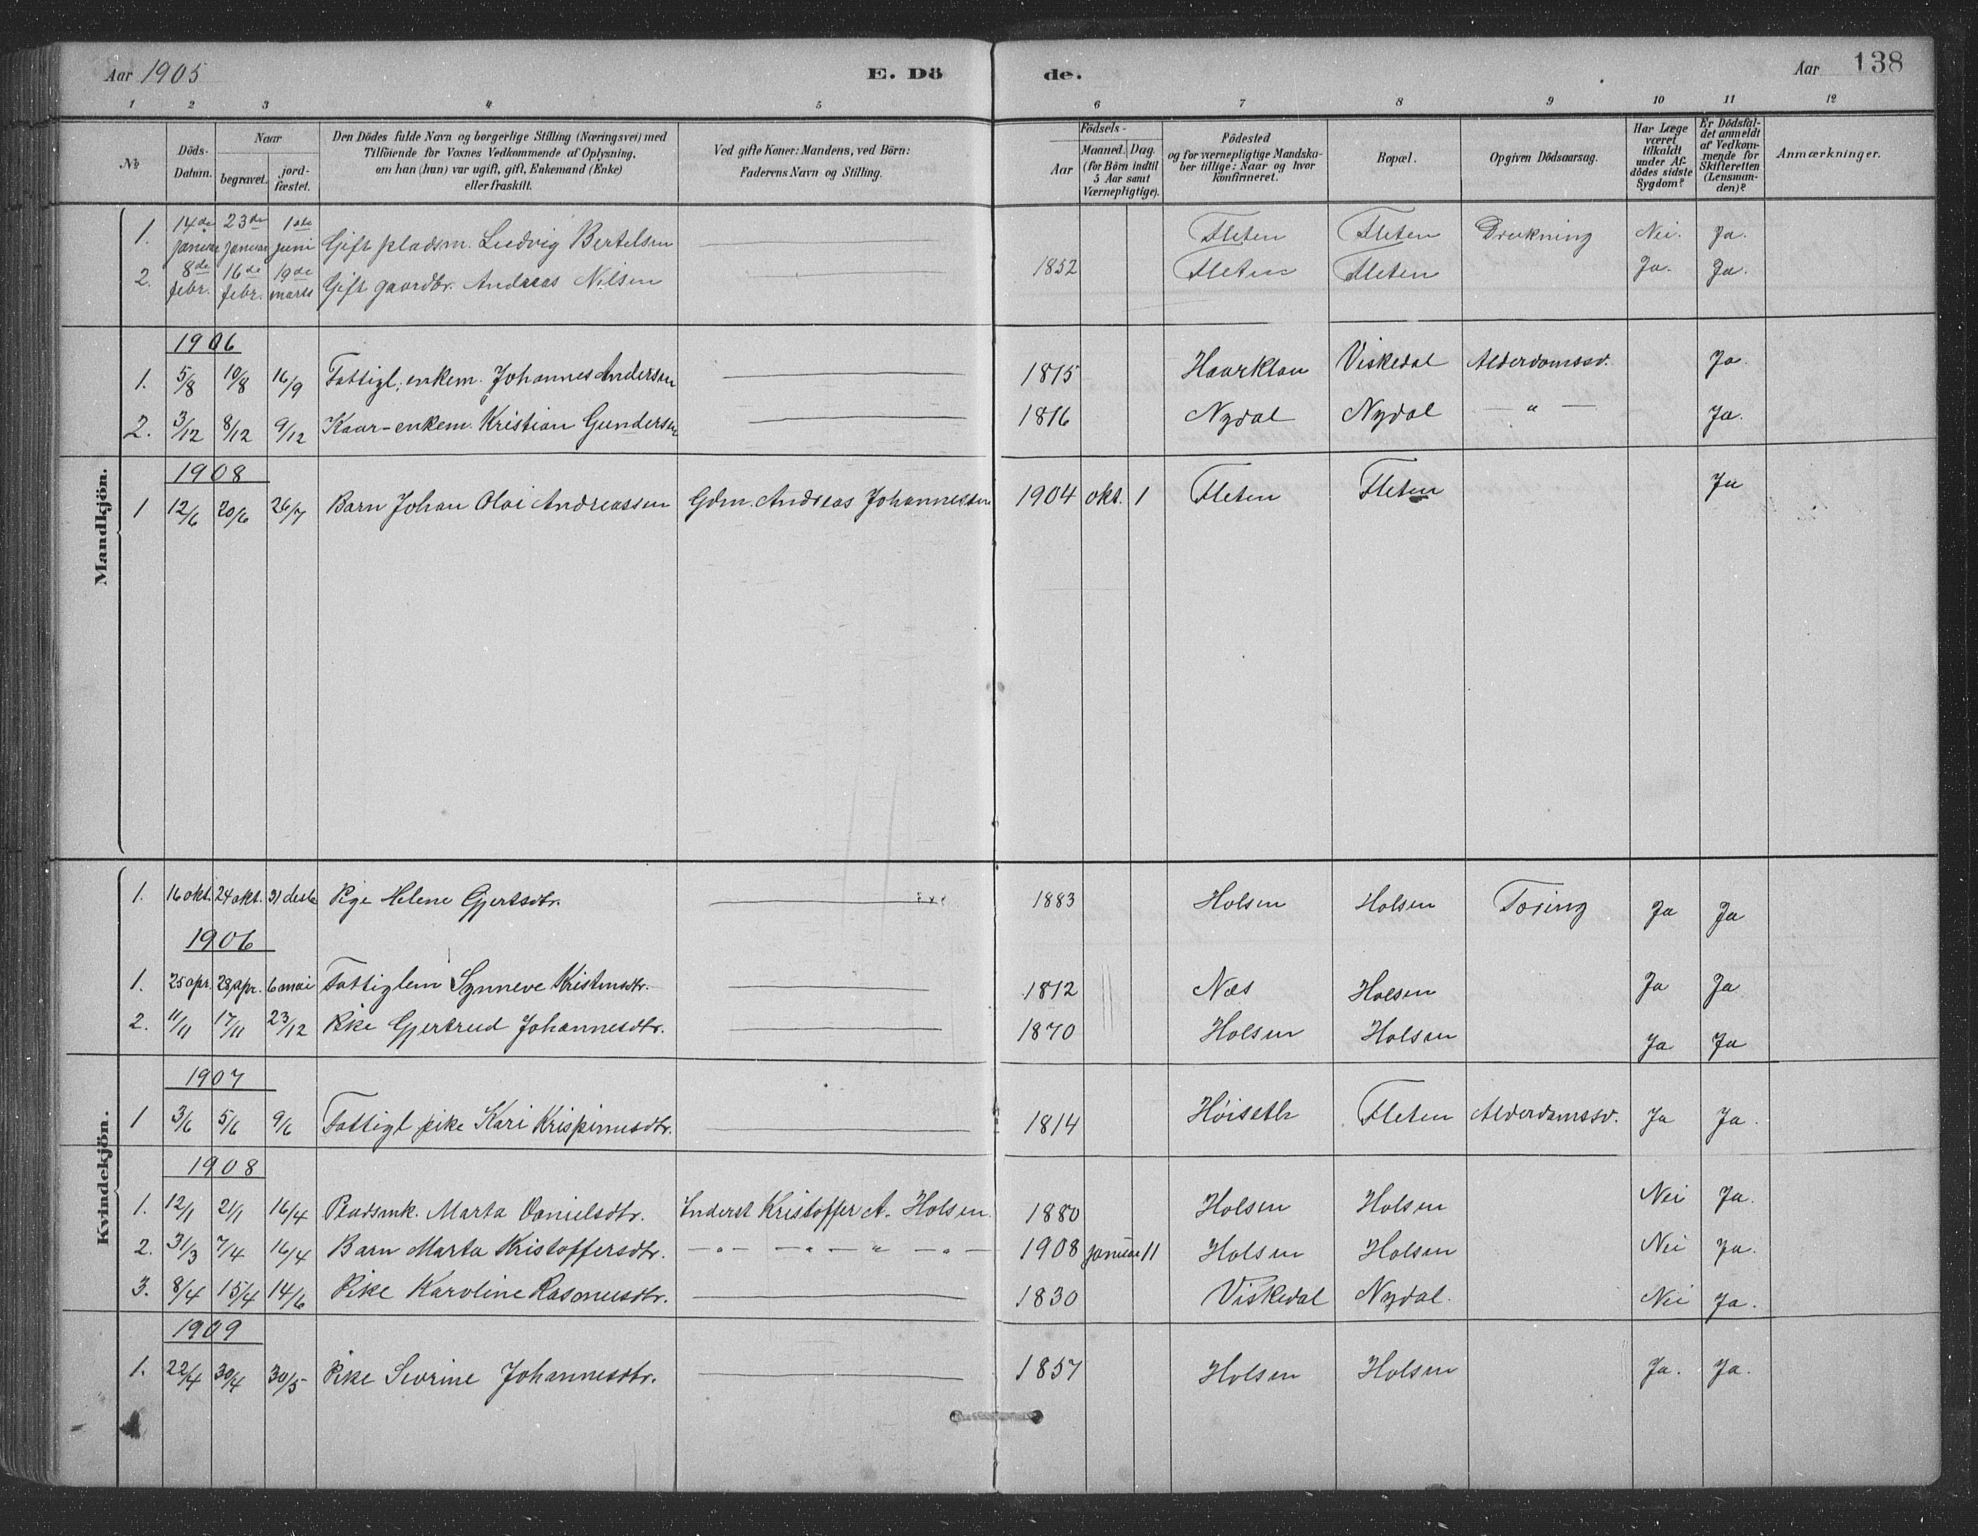 Aar 1905 E. Dö de. Aar 138
1 2 3 4 5 6 7 8 9 10 11 12
No
Döds-Datum.
Naar
begravet.
jord-fæstet.
Den Dödes fulde Navn og borgerlige Stilling (Næringsvei) med
Tilföiende for Voxnes Vedkommende af Oplysning,
om han (hun) var ugift, gift, Enkemand (Enke)
eller fraskilt.
Ved gifte Koner: Mandens, ved Börn:
Faderens Navn og Stilling.
Födsels-
Aar
Maaned. Dag.
(for Börn indtil
5 Aar samt
Værnepligtige).
Födested
og for værnepligtige Mandska-
ber tillige: Naar og hvor
konfirmeret.
Bopæl.
Opgiven Dödsaarsag.
Har Læge
været
tilkaldt
under Af-
dödes sidste
Sygdom?
Er Dödsfal-
det anmeldt
af Vedkom-
mende for
Skifteretten
(Lensman-
den)?
Anmærkninger.
Mandkjön.
1. 14de januar 23de januar 1ste juni Gift pladsm. Ludvig Bertelsen Fleten Fleten Drukning Nei. Ja.
2. 8de febr. 16de febr. 19de marts Gift gaardbr. Andreas Nilsen 1852 Fleten Fleten Ja. Ja.
1906
1. 5/8 10/8 16/9 Fattigl. enkem. Johannes Andersen 1815 Haarklau Viskedal Alderdomssv. Ja.
2. 3/12 8/12 9/12 Kaar-enkem. Kristian Gundersen 1816 Nydal Nydal — " — Ja.
1908
1 12/6 20/6 26/7 Barn Johan Olai Andreassen Gdm. Andreas Johannessen 1904 okt. 1 Fleten Fleten Ja
Kvindekjön.
1. 16 okt. 24 okt. 31 desbr Pige Helene Gjertsdtr. 1883 Holsen Holsen Tæring Ja Ja
1906
1. 25 apr. 28 apr. 6 mai Fattiglem Synneve Kristensdtr. 1812 Næs Holsen Ja Ja
2. 11/11 17/11 23/12 Pike Gjertrud Johannesdtr. 1870 Holsen Holsen Ja Ja
1907
1 3/6 5/6 9/6 Fattigl pike Kari Krispinusdtr. 1814 Höiseth Fleten Alderdomssv. Ja Ja.
1908
1. 12/1 21/1 16/4 Pladsmk. Marta Danielsdtr. Inderst Kristoffer A. Holsen. 1880 Holsen Holsen Nei Ja.
2. 31/3 7/4 16/4 Barn Marta Kristoffersdtr. — " — " — " — " — 1908 januar 11 Holsen Holsen Nei Ja.
3. 8/4 15/4 14/6 Pike Karoline Rasmusdtr. 1830 Viskedal Nydal. Nei Ja.
1909
1. 22/4 30/4 30/5 Pike Sevrine Johannesdtr. 1857 Holsen Holsen Ja. Ja.